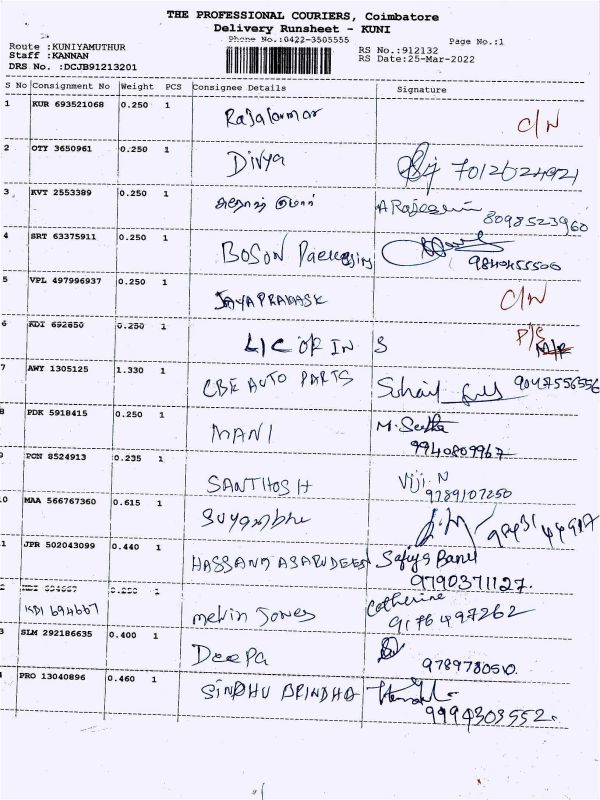 THE PROFESSIONAL COURIERS, Coimbatore
Delivery Runsheet - KUNI
Phone No.:0422-3505555 Page No.:1
Route :KUNIYAMUTHUR RS No.:912132
Staff :KANNAN RS Date:25-Mar-2022
DRS No. :DCJB91213201
S No Consignment No Weight PCS Consignee Details Signature
1 KUR 693521068 0.250 1 Rajakumar C/N
2 OTY 3650961 0.250 1 Divya 7012624921
3 KVT 2553389 0.250 1 8098523960
4 SRT 63375911 0.250 1 BOSON Packaging 9840455506
5 VPL 497996937 0.250 1 JAYAPRAKASK C/N
6 KDI 692850 0.250 1 LIC OF IN S
7 AWY 1305125 1.330 1 CBE AUTO PARTS Suhail 9047556556
8 PDK 5918415 0.250 1 MANI
9940809967
9 PON 8524913 0.235 1 SANTHOSH Viji.N
9789107250
0 MAA 566767360 0.615 1
1 JPR 502043099 0.440 1 Safiya Banu
9790371127.
2 KDI 694667 0.250 1 Catherine
KDI 694667 melvin Jones 9176497262
3 SLM 292186635 0.400 1 Deepa
9789780510.
PRO 13040896 0.460 1 SINDHU BRINDHA
9994303552.